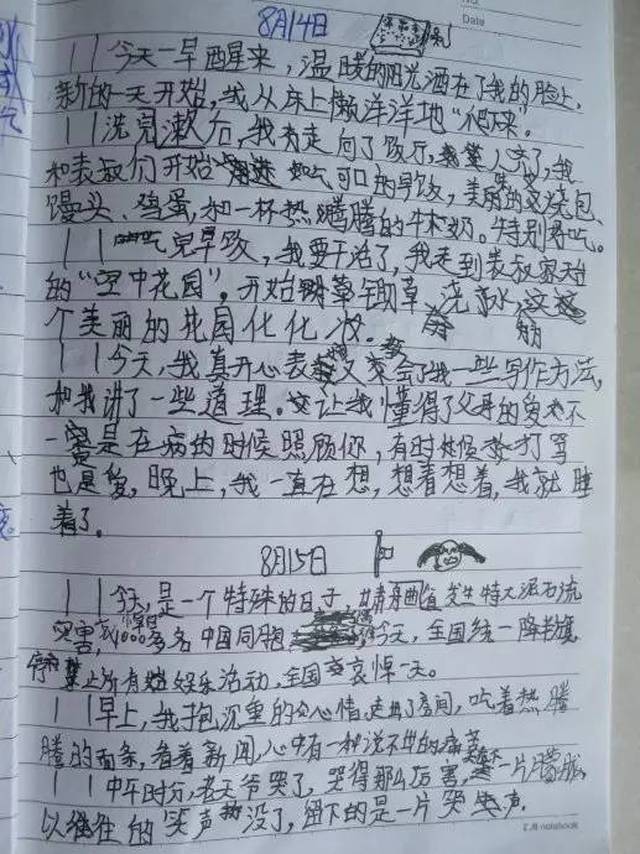 No.
Date
8月14日
今天一早醒来，温暖的阳光洒在了我的脸上，
新的一天开始，我从床上懒洋洋地“爬下来”。
洗完漱后，我走向了饭厅，人齐了，我
和表叔们开始吃可口的早饭，美味的叉烧包、
馒头、鸡蛋，和一杯热腾腾的牛奶。特别好吃。
吃完早饭，我要干活了，我走到表叔家天台
的“空中花园”，开始锄草、浇水，
个美丽的花园化化妆。
今天，我真开心表叔又教会了我一些写作方法，
和我讲了一些道理。这让我懂得了父母的爱不
一定是在病的时候照顾你，有时候打骂
也是爱，晚上，我一直在想，想着想着，我就睡
着了。
8月15日
今天，是一个特殊的日子，甘肃舟曲发生特大泥石流
灾害，1000多名中国同胞 今天，全国统一降半旗，
停止所有娱乐活动，全国哀悼一天。
早上，我抱沉重的心情走出了房间，吃着热腾
腾的面条，看着新闻，心中有一种说不出的痛苦
中午时分，老天爷哭了，哭得那么厉害，一片朦胧，
以往的笑声没了，留下的是一片哭声。
notebook